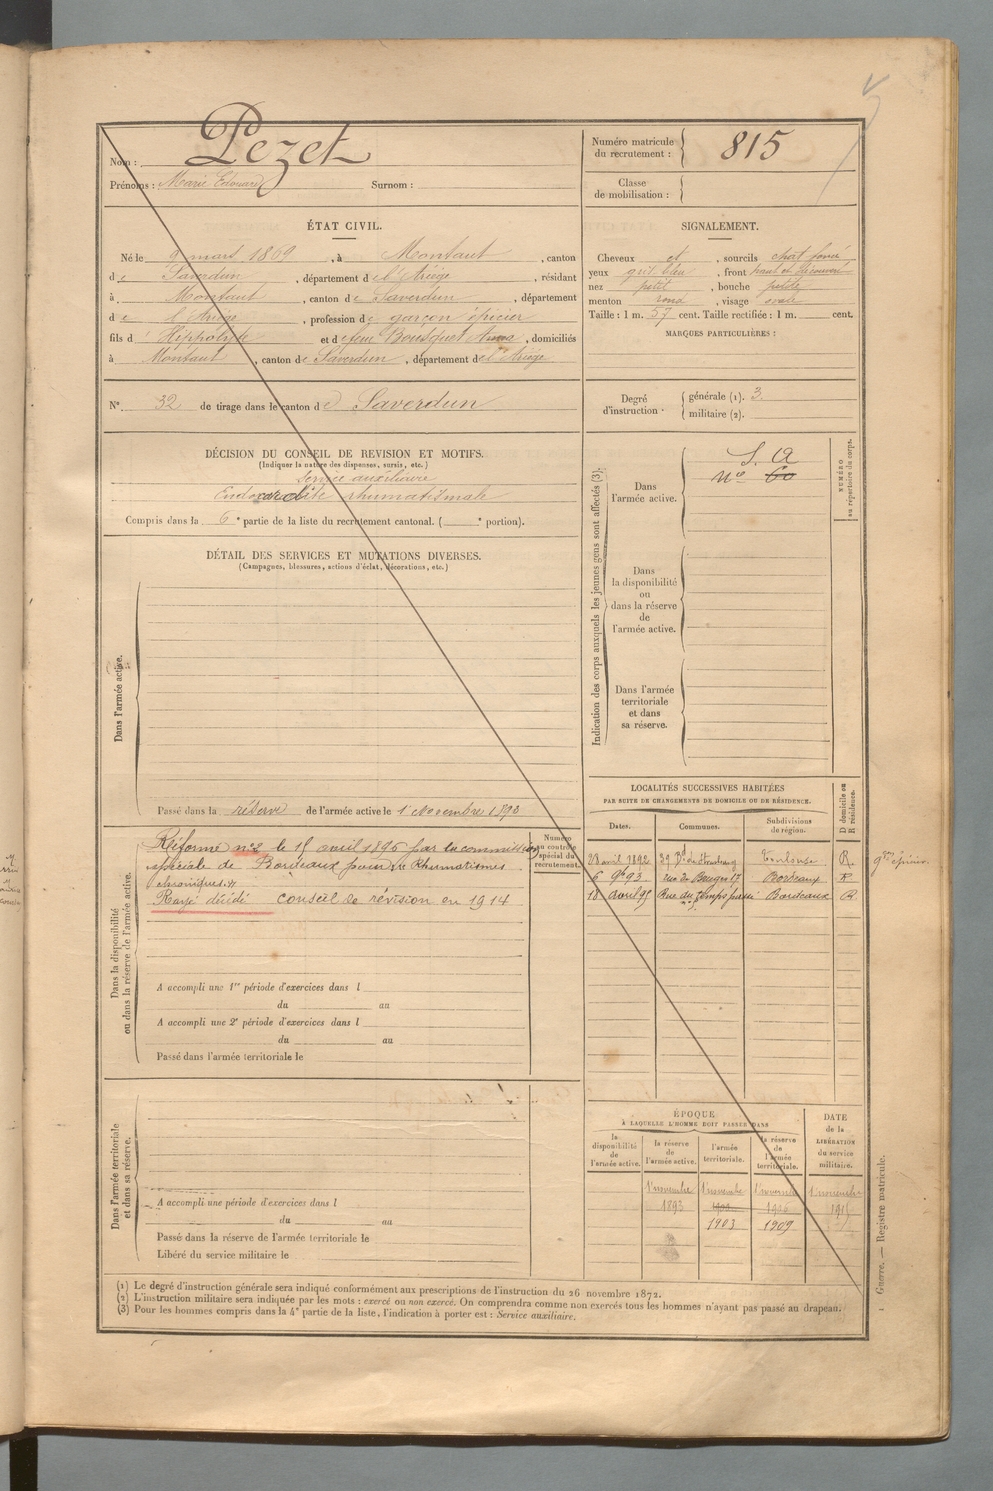 Nom : Pezet
Prénoms : Marie Edouard Surnom :
Numéro matricule du recrutement : 815
Classe de mobilisation :
ÉTAT CIVIL.
Né le 9 mars 1869, à Montaut, canton
de Saverdun, département de l'Ariège, résidant
à Montaut, canton de Saverdun, département
de l'Ariège, profession de garçon épicier
fils d' Hippolyte et de feue Bousquet Anna, domiciliés
à Montaut, canton de Saverdun, département de l'Ariège
SIGNALEMENT.
Cheveux et, sourcils chat foncé
yeux gris bleu, front haut et découvert
nez petit, bouche petite
menton rond, visage ovale
Taille : 1 m. 57 cent. Taille rectifiée : 1 m. cent.
MARQUES PARTICULIÈRES :
N° 32 de tirage dans le canton de Saverdun
Degré d'instruction
générale (1). 3
militaire (2).
DÉCISION DU CONSEIL DE REVISION ET MOTIFS.
(Indiquer la nature des dispenses, sursis, etc.)
Service auxiliaire
Endocardite rhumatismale
Compris dans la 6e partie de la liste du recrutement cantonal. (e portion).
DÉTAIL DES SERVICES ET MUTATIONS DIVERSES.
(Campagnes, blessures, actions d'éclat, décorations, etc.)
Dans l'armée active.
Passé dans la réserve de l'armée active le 1er Novembre 1893
Indication des corps auxquels les jeunes gens sont affectés (3).
NUMÉRO au répertoire du corps.
Dans l'armée active.
S. A
N° 60
Dans la disponibilité ou dans la réserve de l'armée active.
Dans l'armée territoriale et dans sa réserve.
Dans la disponibilité ou dans la réserve de l'armée active.
Numéro au contrôle spécial du recrutement.
Réformé n°2 le 15 avril 1896 par la commission
spéciale de Bordeaux pour Rhumatismes
chroniques.
Rayé décédé conseil de révision en 1914
A accompli une 1re période d'exercices dans l
du au
A accompli une 2e période d'exercices dans l
du au
Passé dans l'armée territoriale le
LOCALITÉS SUCCESSIVES HABITÉES
PAR SUITE DE CHANGEMENTS DE DOMICILE OU DE RÉSIDENCE.
Dates. Communes. Subdivisions de région. D domicile ou R résidence.
28 avril 1892 39 Bd de Strasbourg Toulouse R gçon épicier
6 9bre 93 Bordeaux R
18 avril 95 Rue du temps passé Bordeaux R
Dans l'armée territoriale et dans sa réserve.
A accompli une période d'exercices dans l
du au
Passé dans la réserve de l'armée territoriale le
Libéré du service militaire le
ÉPOQUE
À LAQUELLE L'HOMME DOIT PASSER DANS
la disponibilité de l'armée active. la réserve de l'armée active. l'armée territoriale. la réserve de l'armée territoriale.
DATE de la LIBÉRATION du service militaire.
1er novembre 1er novembre 1er novembre 1er novembre
1893
1903 1909
(1) Le degré d'instruction générale sera indiqué conformément aux prescriptions de l'instruction du 26 novembre 1872.
(2) L'instruction militaire sera indiquée par les mots : exercé ou non exercé. On comprendra comme non exercés tous les hommes n'ayant pas passé au drapeau.
(3) Pour les hommes compris dans la 4e partie de la liste, l'indication à porter est : Service auxiliaire.
Guerre. — Registre matricule.